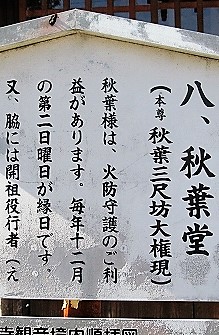 八、秋葉堂
（本尊 秋葉三尺坊大権現）
秋葉様は、火防守護のご利
益があります。毎年十二月
の第二日曜日が縁日です。
又、脇には開祖役行者（え